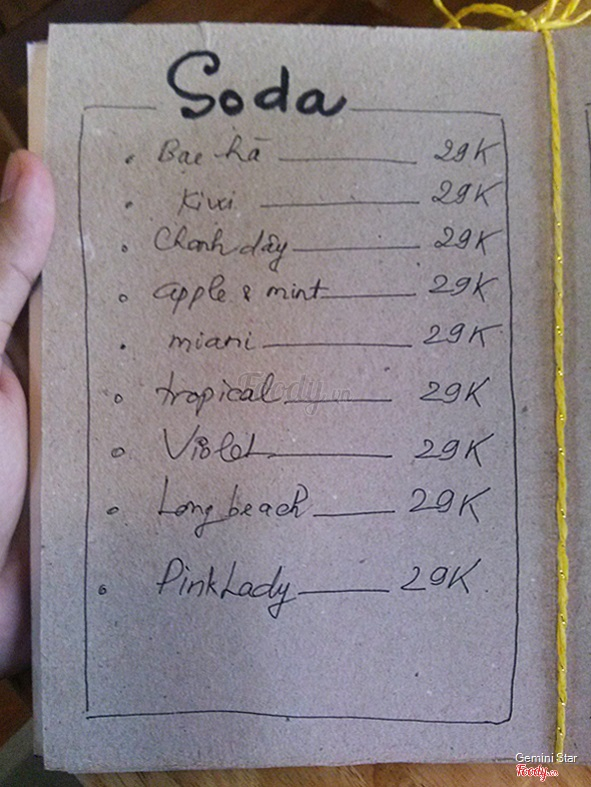 Soda
Bạc hà 29K
Kiwi 29K
Chanh dây 29K
apple & mint 29K
miami 29K
tropical 29K
Violet 29K
Long beach 29K
Pink Lady 29K
Foody.vn
Gemini Star
Foody.vn